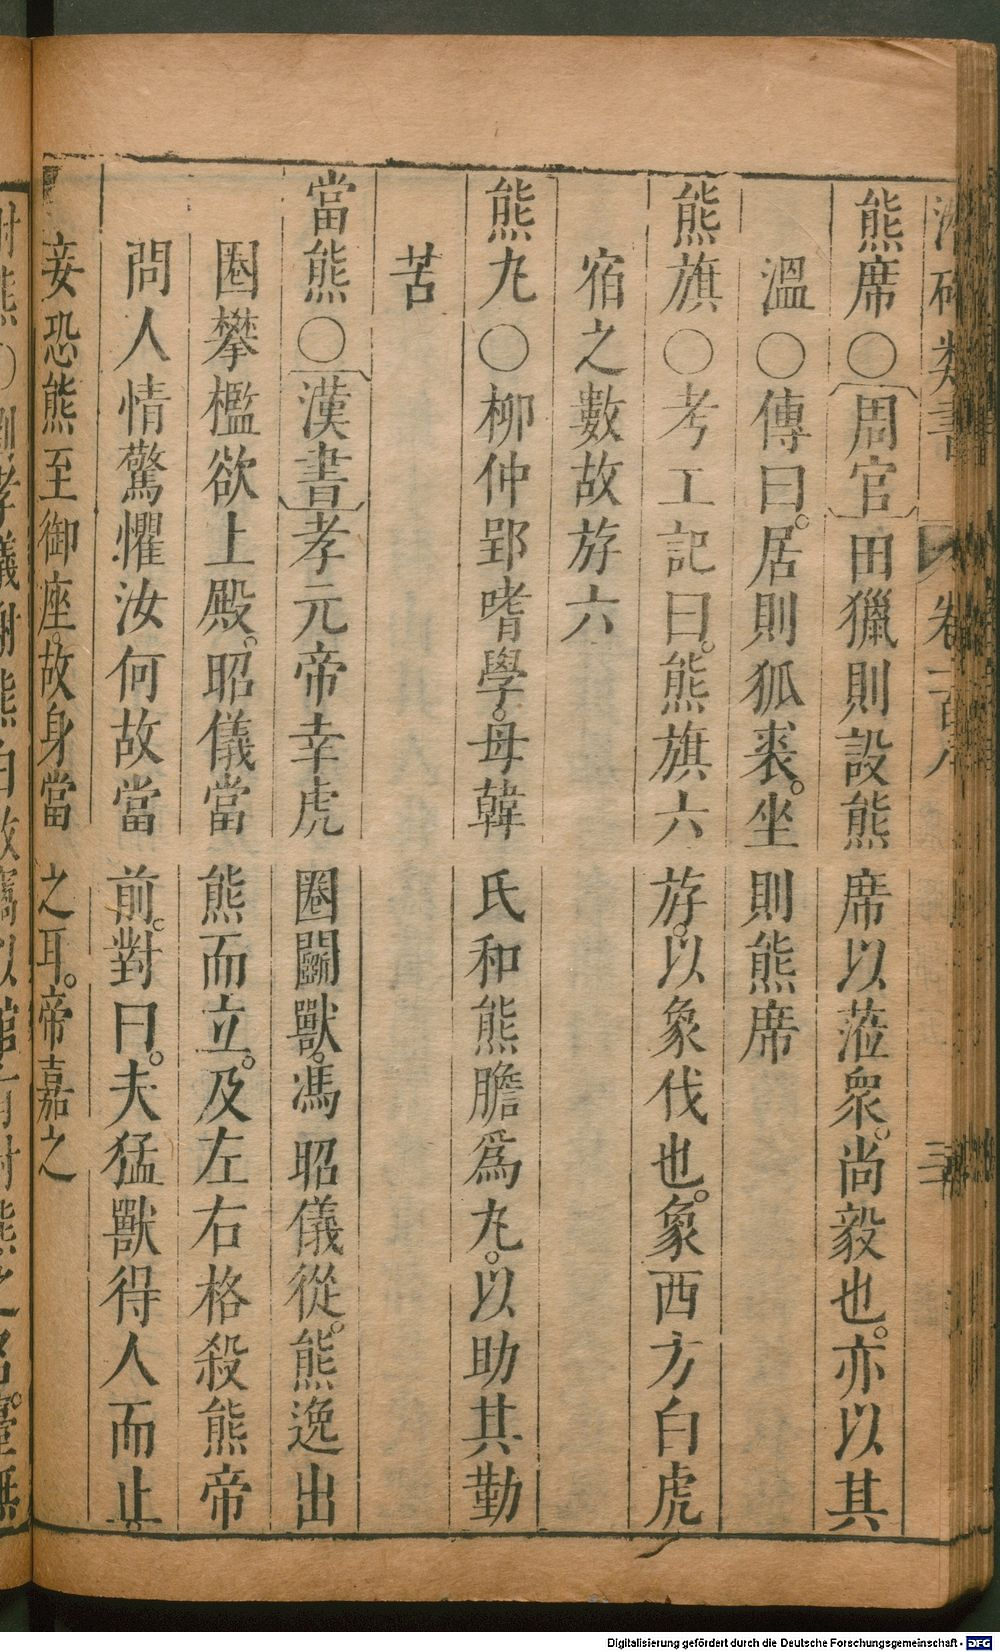 類書 卷一百八 三
熊席○周官田獵則設熊席以蒞衆。尚毅也。亦以其
溫○傳曰。居則狐裘。坐則熊席
熊旗○考工記曰。熊旗六斿。以象伐也。象西方白虎
宿之數故斿六
熊丸○柳仲郢嗜學。母韓氏和熊膽爲丸。以助其勤
苦
當熊○漢書孝元帝幸虎圈鬬獸。馮昭儀從。熊逸出
圈攀檻欲上殿。昭儀當熊而立。及左右格殺熊帝
問人情驚懼汝何故當前。對曰。夫猛獸得人而止。
妾恐熊至御座。故身當之耳。帝嘉之
Digitalisierung gefördert durch die Deutsche Forschungsgemeinschaft - DFG